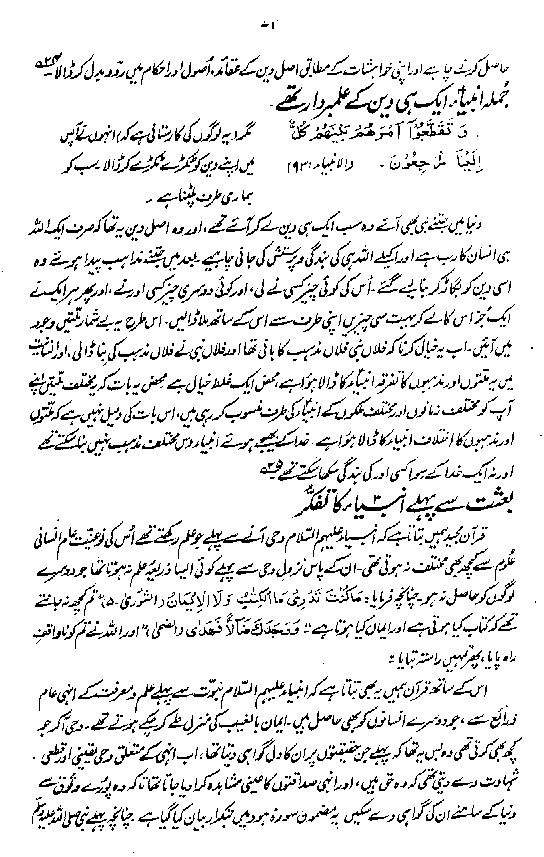 ۷۱
حاصل کرنے چاہے اور اپنی خواہشات کے مطابق اصل دین کے عقائد، اُصول اور احکام میں ردّ و بدل کر ڈالا
جُملہ انبیاءؑ ایک ہی دین کے علمبردار تھے۔
وَ تَقَطَّعُوْٓا اَمْرَهُمْ بَيْنَهُمْ كُلٌّ مگر (یہ لوگوں کی کارستانی ہے کہ) انہوں نے آپس
اِلَيْنَا رٰجِعُوْنَ۔ (الانبیاء ۹۳) میں اپنے دین کو ٹکڑے ٹکڑے کر ڈالا۔ سب کو
ہماری طرف پلٹنا ہے۔
دنیا میں جتنے نبی بھی آئے وہ سب ایک ہی دین لے کر آئے تھے، اور وہ اصل دین یہ تھا کہ صرف ایک اللہ
ہی انسان کا رب ہے اور اکیلے اللہ ہی کی بندگی و پرستش کی جانی چاہیے۔ بعد میں جتنے مذاہب پیدا ہوئے وہ
اسی دین کو بگاڑ کر بنا لیے گئے۔ اُس کی کوئی چیز کسی نے لی، اور کوئی دوسری چیز کسی اور نے، اور پھر ہر ایک نے
ایک جُز اس کا لے کر بہت سی چیزیں اپنی طرف سے اس کے ساتھ ملا ڈالیں۔ اس طرح یہ بے شمار ملتیں وجود
میں آئیں۔ اب یہ خیال کرنا کہ فلاں نبی فلاں مذہب کا بانی تھا اور فلاں نبی نے فلاں مذہب کی بنا ڈالی، اور انسانیت
میں یہ ملتوں اور مذہبوں کا تفرقہ انبیاءؑ کا ڈالا ہوا ہے، محض ایک غلط خیال ہے۔ محض یہ بات کہ یہ مختلف ملتیں اپنے
آپ کو مختلف زمانوں اور مختلف ملکوں کے انبیاءؑ کی طرف منسوب کر رہی ہیں، اس بات کی دلیل نہیں ہے کہ ملتوں
اور مذہبوں کا اختلاف انبیاءؑ کا ڈالا ہوا ہے۔ خدا کے بھیجے ہوئے انبیاءؑ دس مختلف مذہب نہیں بنا سکتے تھے
اور نہ ایک خدا کے سوا کسی اور کی بندگی سکھا سکتے تھے
بعثت سے پہلے انبیاءؑ کا تفکر
قرآن مجید ہمیں بتاتا ہے کہ انبیاء علیہم السّلام وحی آنے سے پہلے جو علم رکھتے تھے اُس کی نوعیت عام انسانی
علوم سے کچھ بھی مختلف نہ ہوتی تھی۔ ان کے پاس نزولِ وحی سے پہلے کوئی ایسا ذریعۂ علم نہ ہوتا تھا جو دوسرے
لوگوں کو حاصل نہ ہو۔ چنانچہ فرمایا: مَا كُنْتَ تَدْرِيْ مَا الْكِتٰبُ وَلَا الْاِيْمَانُ (الشوریٰ۔ ۵) "تم کچھ نہ جانتے
تھے کہ کتاب کیا ہوتی ہے اور ایمان کیا ہوتا ہے" وَوَجَدَكَ ضَآلًّا فَهَدٰى (الضحیٰ) "اور اللہ نے تم کو ناواقفِ
راہ پایا، پھر تمہیں راستہ بتایا"۔
اس کے ساتھ قرآن ہمیں یہ بھی بتاتا ہے کہ انبیاء علیہم السّلام نبوّت سے پہلے علم و معرفت کے انہی عام
ذرائع سے، جو دوسرے انسانوں کو بھی حاصل ہیں۔ ایمان بالغیب کی منزل طے کر چکے ہوتے تھے۔ وحی آکر جو
کچھ بھی کرتی تھی وہ بس یہ تھا کہ پہلے جن حقیقتوں پر ان کا دل گواہی دیتا تھا۔ اب انہی کے متعلق وحی یقینی اور قطعی
شہادت دے دیتی تھی کہ وہ حق ہیں، اور انہی صداقتوں کا عینی مشاہدہ کرا دیا جاتا تھا تاکہ وہ پورے وثوق سے
دنیا کے سامنے ان کی گواہی دے سکیں۔ یہ مضمون سورۂ ہود میں بتکرار بیان کیا گیا ہے۔ چنانچہ پہلے نبی صلی اللہ علیہ وسلم